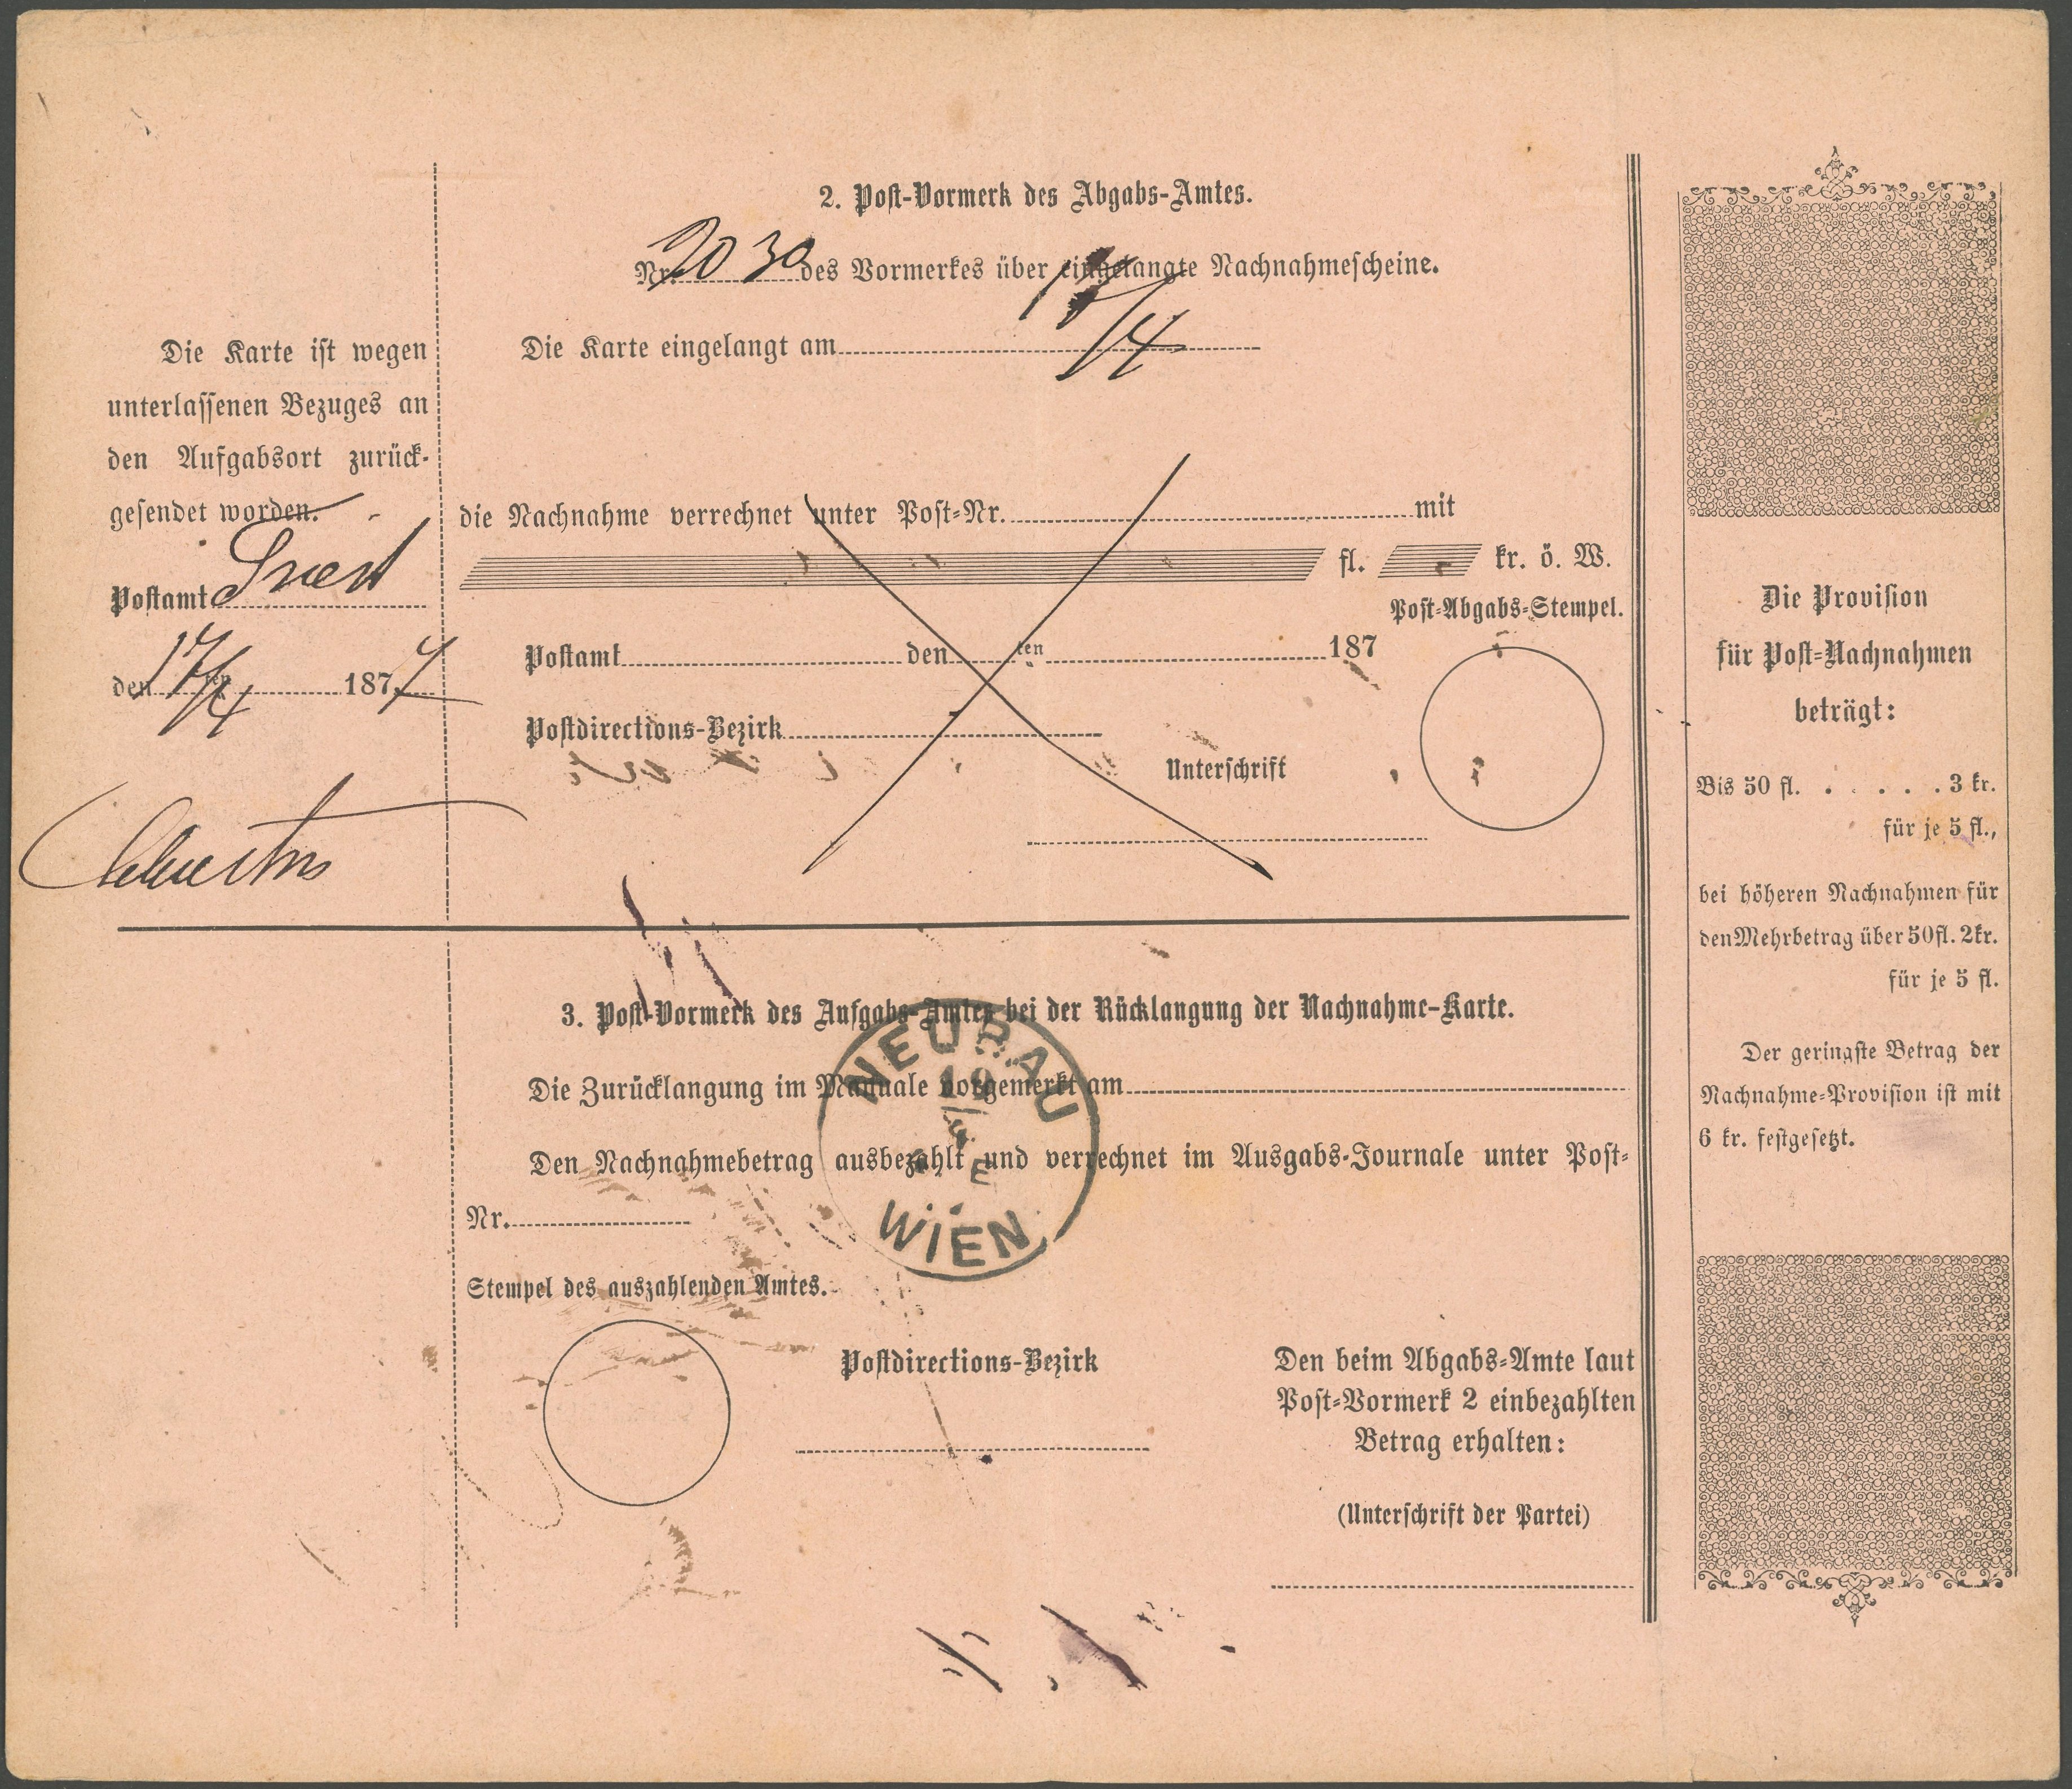 Die Karte ist wegen
unterlassenen Bezuges an
den Aufgabsort zurück-
gesendet worden.
Postamt
den 17/4 ten 1877
2. Post-Vormerk des Abgabs-Amtes.
Nr. 2030 des Vormerkes über eingelangte Nachnahmescheine.
Die Karte eingelangt am /4
die Nachnahme verrechnet unter Post-Nr. mit
fl. kr. ö. W.
Post-Abgabs-Stempel.
Postamt den ten 187
Postdirections-Bezirk
Unterschrift
3. Post-Vormerk des Aufgabs-Amtes bei der Rücklangung der Nachnahme-Karte.
Die Zurücklangung im Manuale vorgemerkt am
Den Nachnahmebetrag ausbezahlt und verrechnet im Ausgabs-Journale unter Post-
Nr.
NEUBAU
19
4
E
WIEN
Stempel des auszahlenden Amtes.
Postdirections-Bezirk
Den beim Abgabs-Amte laut
Post-Vormerk 2 einbezahlten
Betrag erhalten:
(Unterschrift der Partei)
Die Provision
für Post-Nachnahmen
beträgt:
Bis 50 fl. . . . . . 3 kr.
für je 5 fl.,
bei höheren Nachnahmen für
den Mehrbetrag über 50 fl. 2 kr.
für je 5 fl.
Der geringste Betrag der
Nachnahme-Provision ist mit
6 kr. festgesetzt.